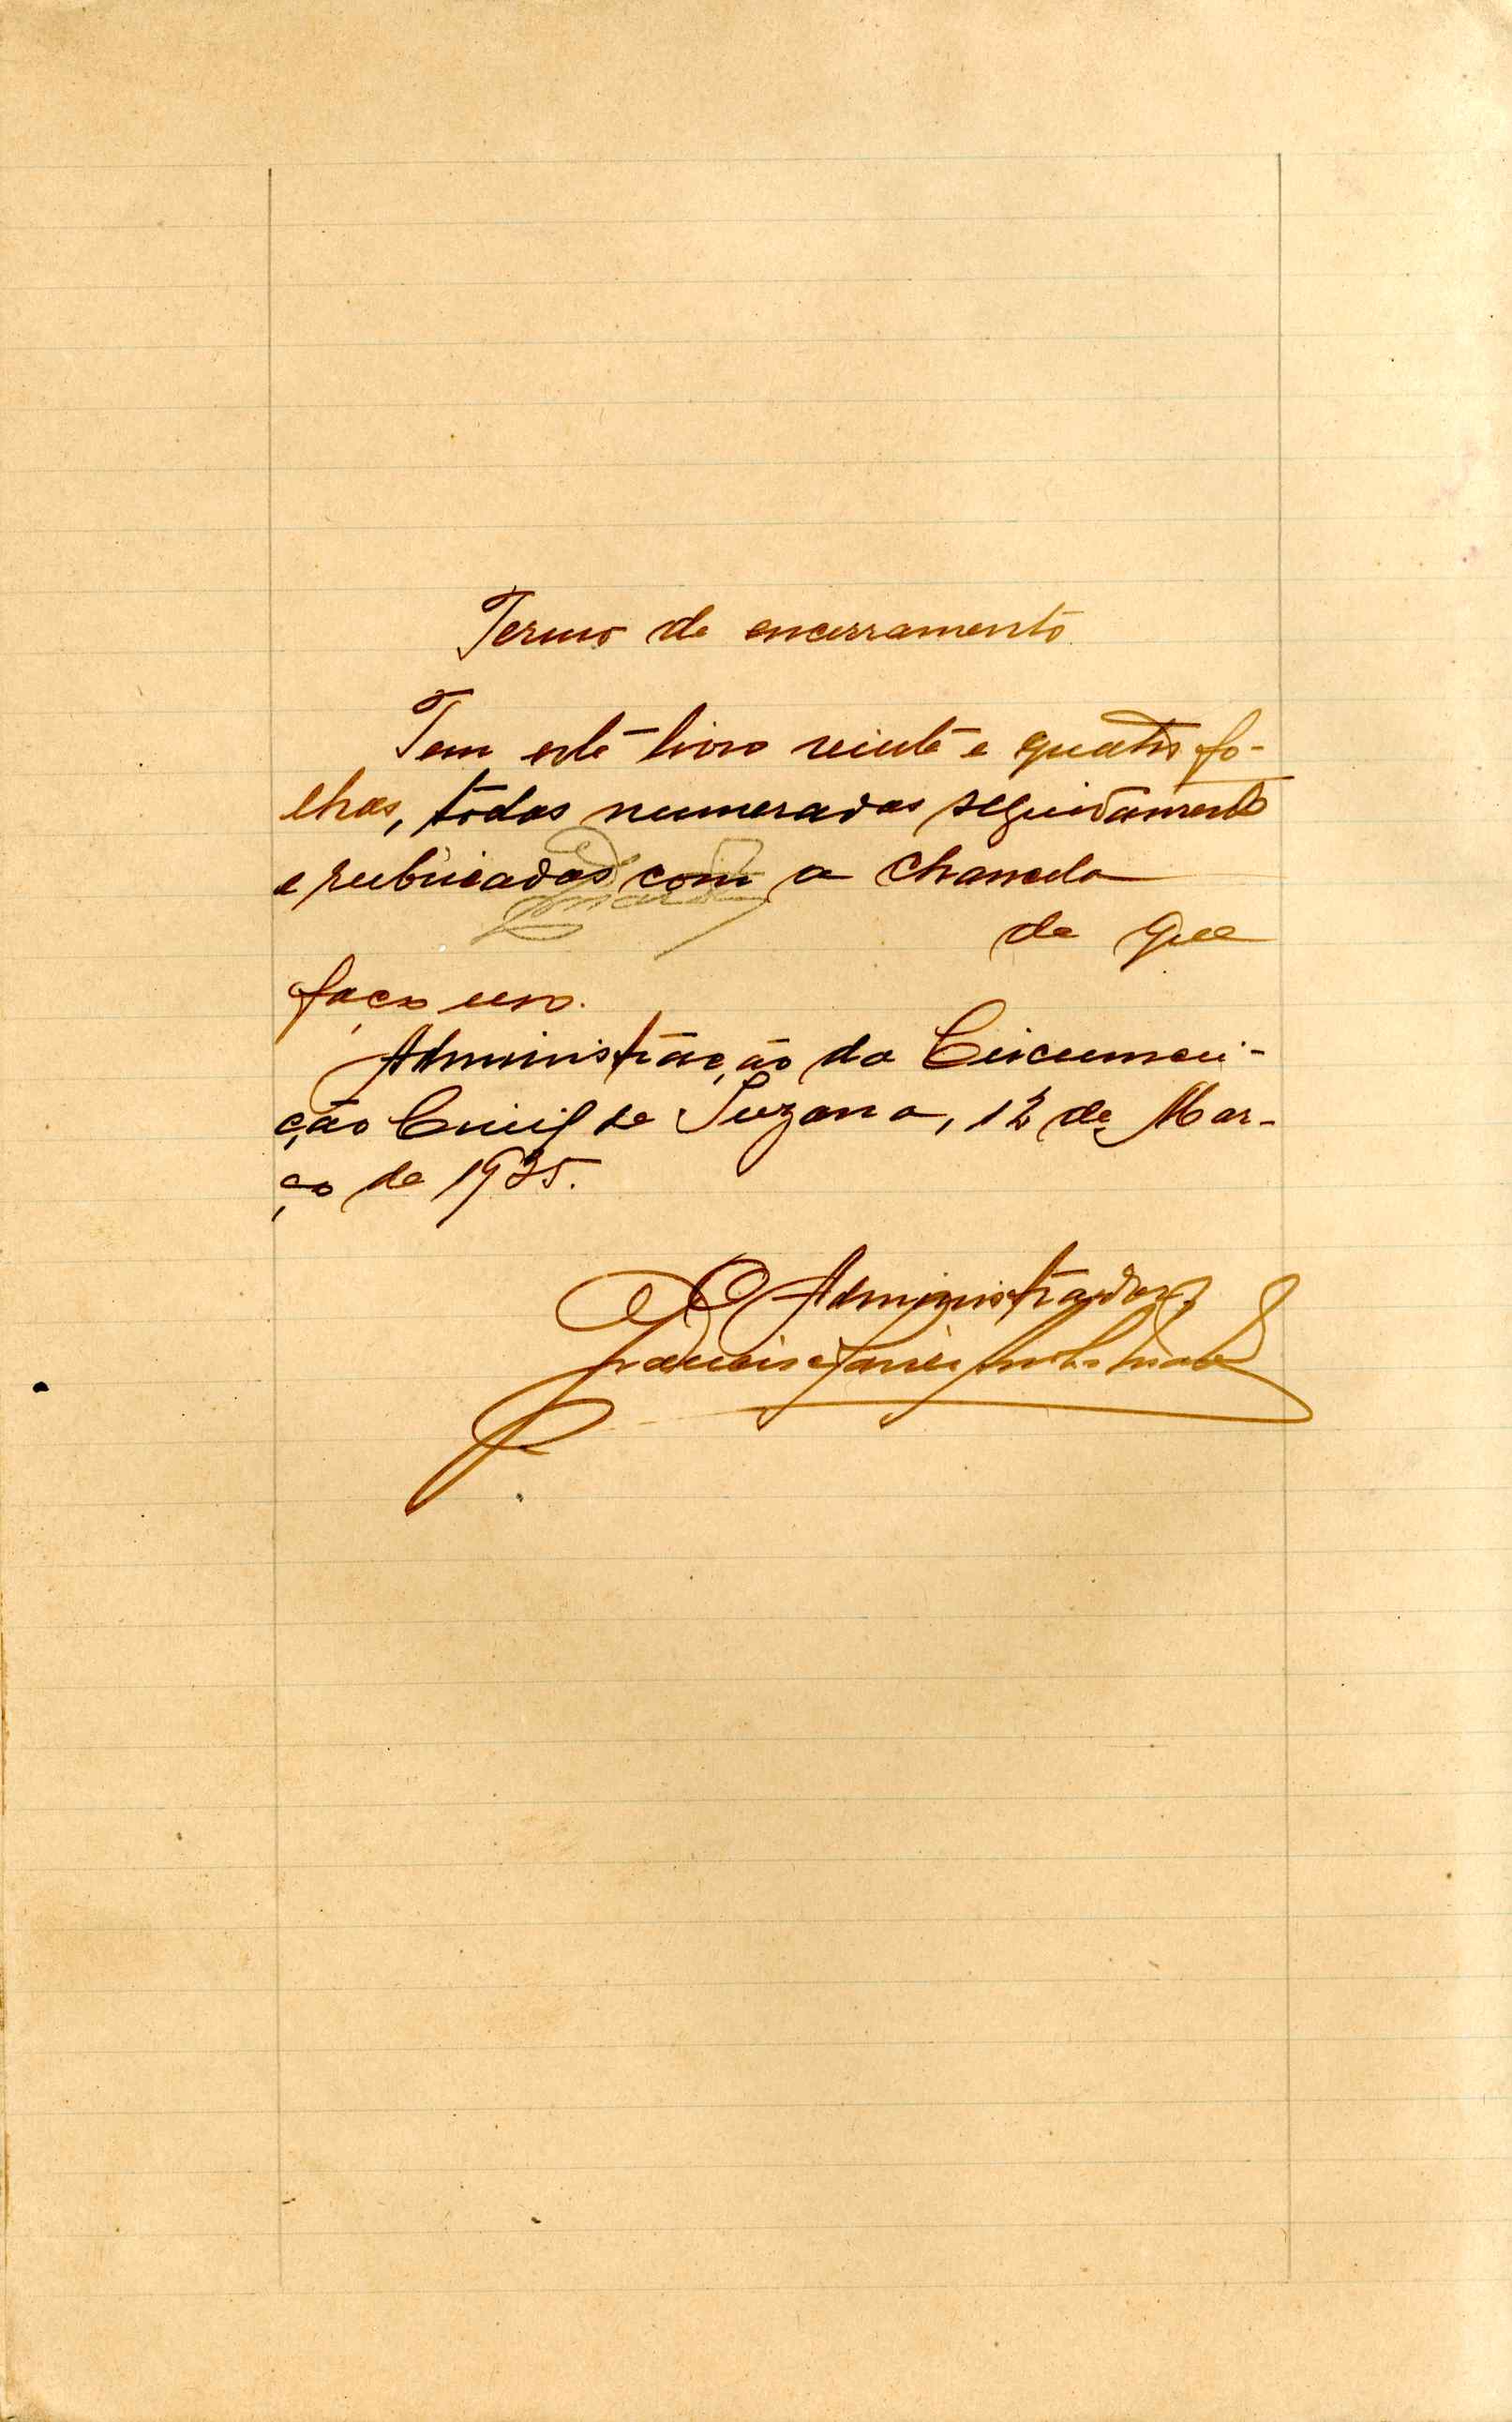 Termo de encerramento
Tem este livro vinte e quatro fo-
lhas, todas numeradas seguidamente
e rubricadas com a chancela
de que
faço uso.
Administração da Circumscri-
ção Civil de Suzana, 12 de Mar-
ço de 1935.
O Administrador,
Francisco